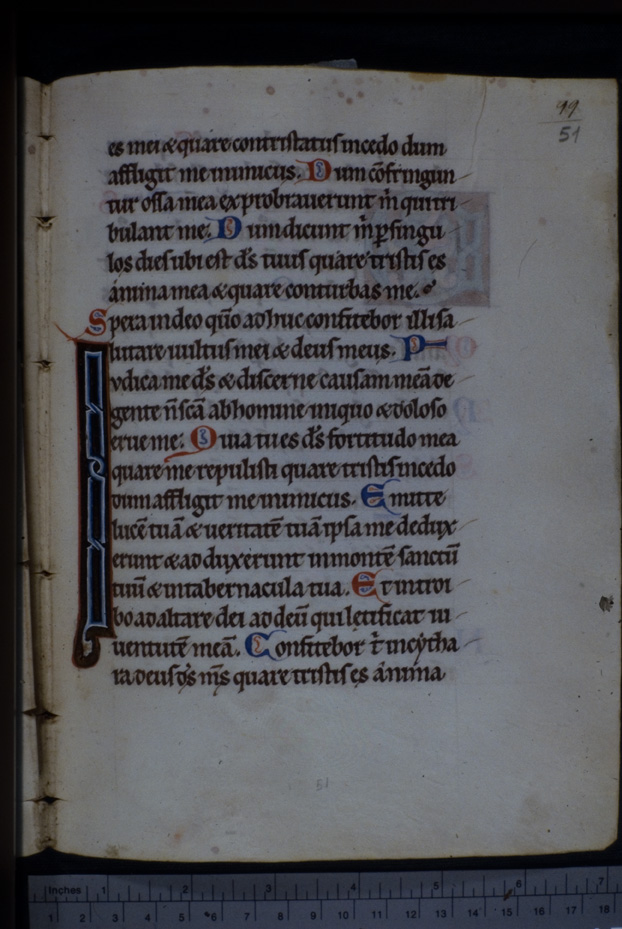 99
51
es mei & quare contristatus incedo dum
affligit me inimicus. Dum cōfringun
tur ossa mea exprobrauerunt m̄ qui tri
bulant me. Dum dicunt m̄ ꝑ singu
los dies ubi est d̄s tuus quare tristis es
anima mea & quare conturbas me.
Spera in deo qm̄ adhuc confitebor illi sa
lutare uultus mei & deus meus. P
Iudica me d̄s & discerne causam meā de
gente n̄ scā ab homine iniquo & doloso
erue me. Quia tu es d̄s fortitudo mea
quare me repulisti quare tristis incedo
dum affligit me inimicus. Emitte
lucē tuā & ueritatē tuā ipsa me dedux
erunt & adduxerunt in montē sanctū
tuū & in tabernacula tua. Et introi
bo ad altare dei ad deū qui letificat iu
uentutē meā. Confitebor t̄ in cytha
ra deus d̄s m̄s quare tristis es anima
51
Inches 1 2 3 4 5 6 7
1 2 3 4 5 6 7 8 9 10 11 12 13 14 15 16 17 18